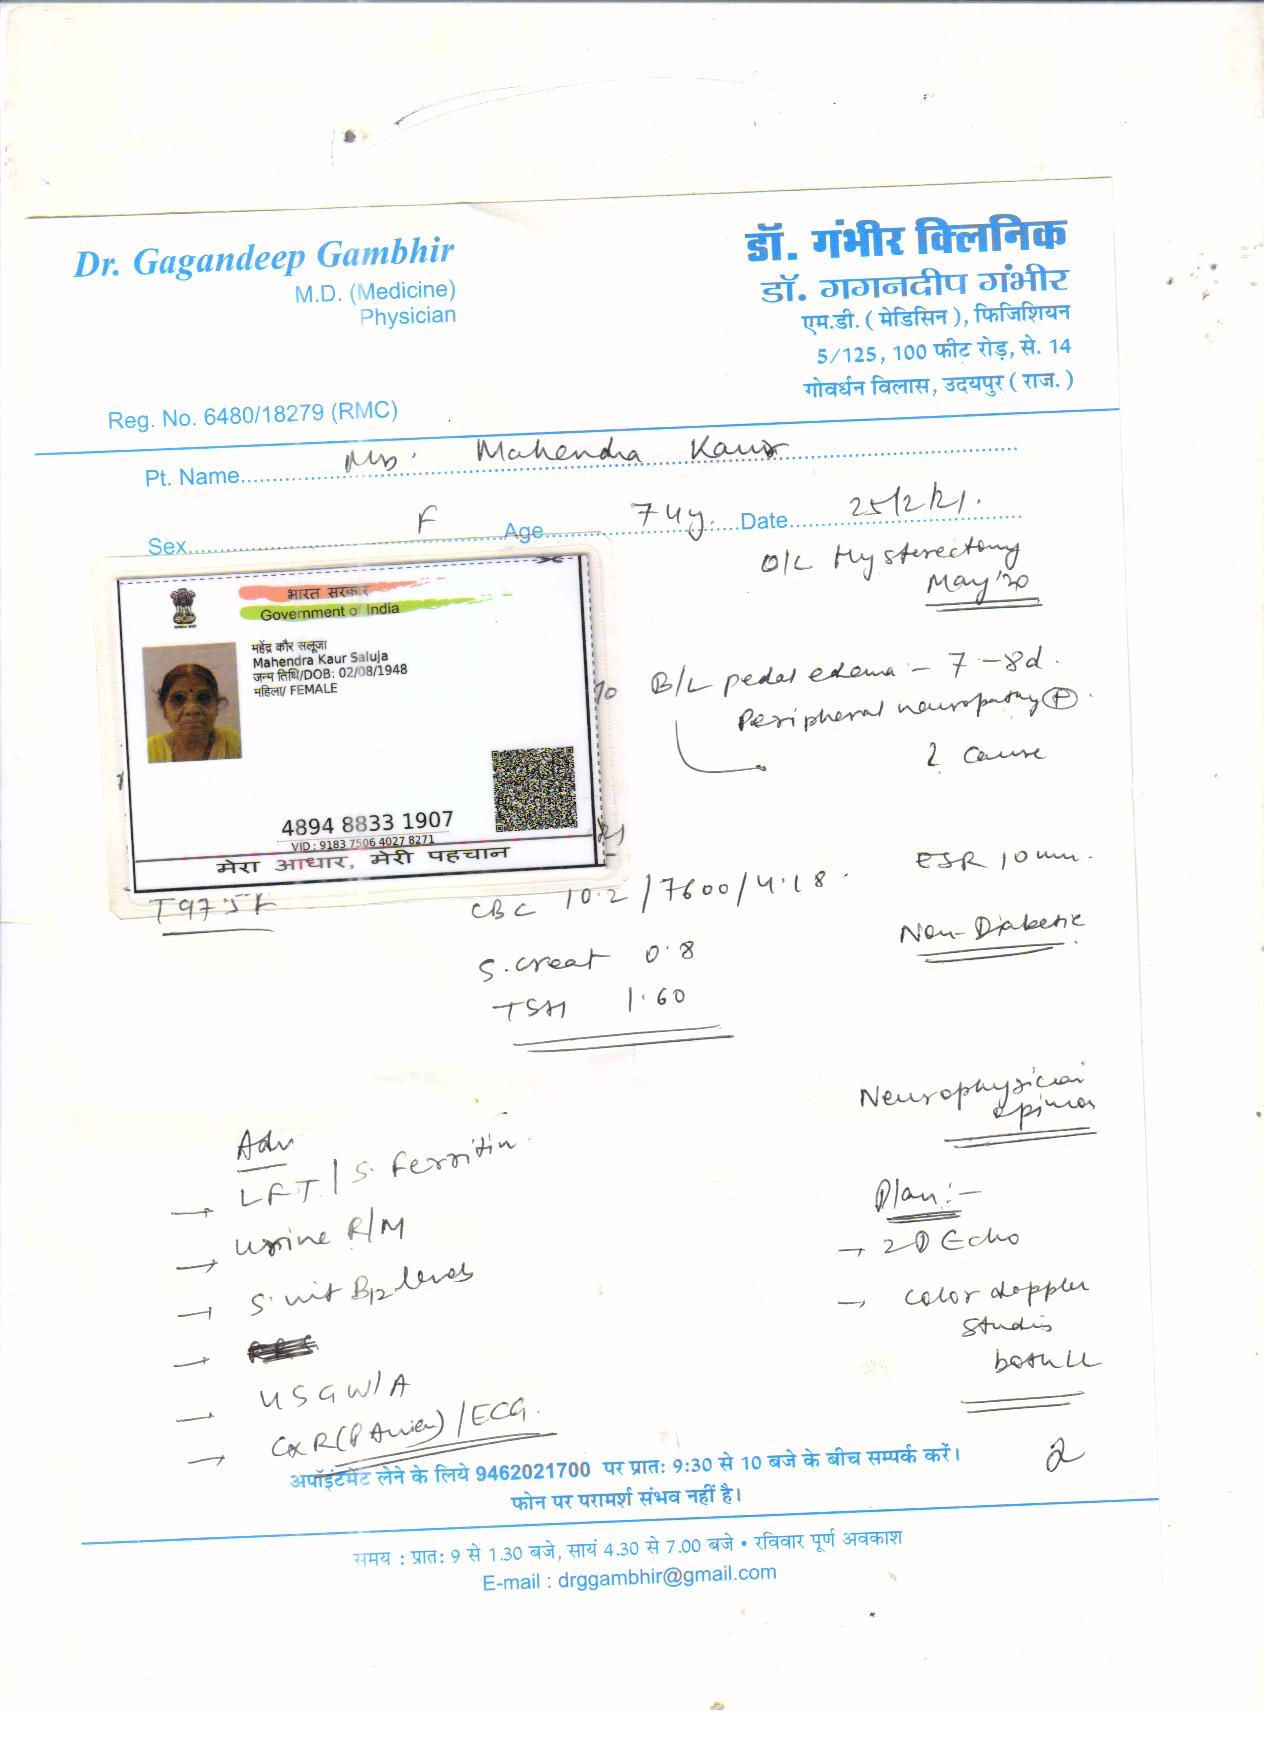 Dr. Gagandeep Gambhir
M.D. (Medicine)
Physician
Reg. No. 6480/18279 (RMC)
डॉ. गंभीर क्लिनिक
डॉ. गगनदीप गंभीर
एम.डी. ( मेडिसिन ), फिजिशियन
5/125, 100 फीट रोड़, से. 14
गोवर्धन विलास, उदयपुर ( राज. )
Pt. Name Mrs. Mahendra Kaur
Sex F Age 74y. Date 25/2/21.
O/L Hysterectomy
May'20
भारत सरकार
Government of India
महेंद्र कौर सलूजा
Mahendra Kaur Saluja
जन्म तिथि/DOB: 02/08/1948
महिला/ FEMALE
4894 8833 1907
VID : 9183 7506 4027 8271
मेरा आधार, मेरी पहचान
B/L pedal edema :- 7-8d.
Peripheral neuropathy (+).
? Cause
ESR 10 mm.
T97.5F
CBC 10.2/7600/4.18.
Non-Diabetic
S. creat 0.8
TSH 1.60
Neurophysician
opinion
Adv
→ LFT / S. Ferritin
→ Urine R/M
→ S. vit B12 levels
→ USG W/A
→ CxR (PA view) / ECG.
Plan :-
→ 2D Echo
→ Color doppler
studies
both LL
अपॉइंटमेंट लेने के लिये 9462021700 पर प्रातः 9:30 से 10 बजे के बीच सम्पर्क करें।
फोन पर परामर्श संभव नहीं है।
समय : प्रातः 9 से 1.30 बजे, सायं 4.30 से 7.00 बजे • रविवार पूर्ण अवकाश
E-mail : drggambhir@gmail.com